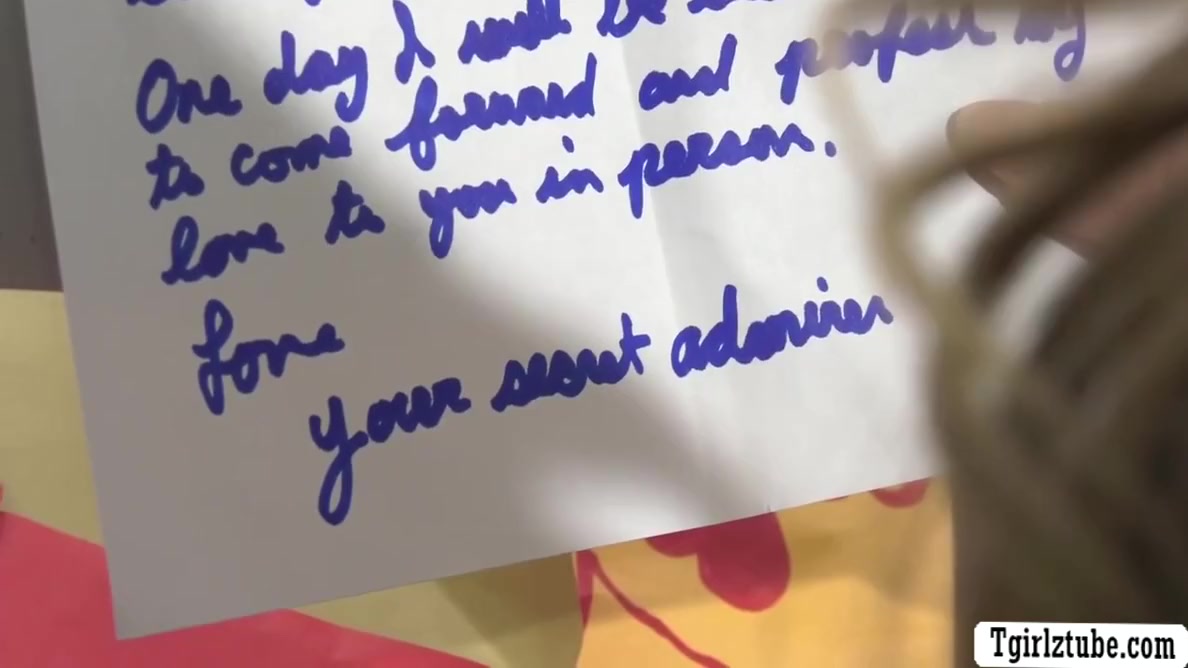 One day I will be
to come forward and profess my
love to you in person.
Love
your secret admirer
Tgirlztube.com